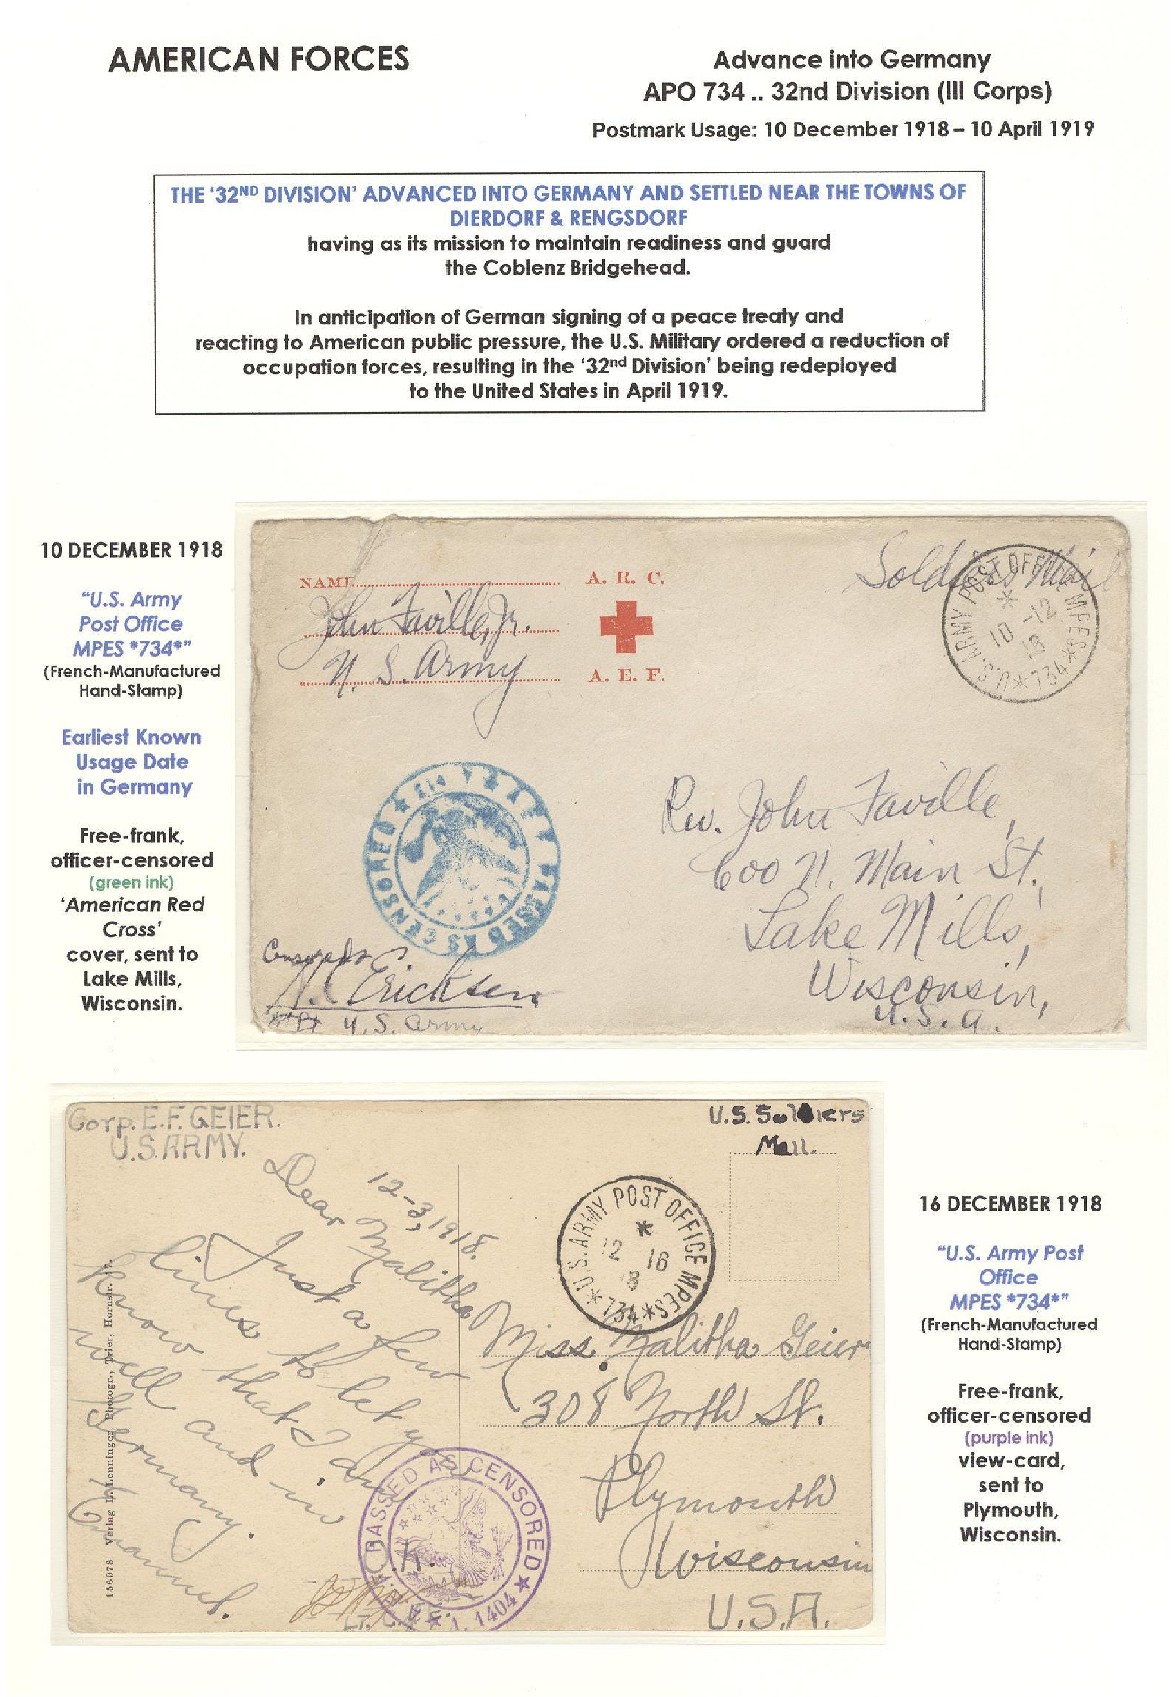 AMERICAN FORCES
Advance into Germany
APO 734 .. 32nd Division (III Corps)
Postmark Usage: 10 December 1918 – 10 April 1919
THE '32ND DIVISION' ADVANCED INTO GERMANY AND SETTLED NEAR THE TOWNS OF
DIERDORF & RENGSDORF
having as its mission to maintain readiness and guard
the Coblenz Bridgehead.
In anticipation of German signing of a peace treaty and
reacting to American public pressure, the U.S. Military ordered a reduction of
occupation forces, resulting in the '32nd Division' being redeployed
to the United States in April 1919.
10 DECEMBER 1918
"U.S. Army
Post Office
MPES *734*"
(French-Manufactured
Hand-Stamp)
Earliest Known
Usage Date
in Germany
Free-frank,
officer-censored
(green ink)
'American Red
Cross'
cover, sent to
Lake Mills,
Wisconsin.
NAME
John Faville, Jr.
U. S. Army
A. R. C.
A. E. F.
Soldiers Mail
U.S. ARMY POST OFFICE MPES
*
10 -12
18
*734*
PASSED AS CENSORED
Censored
N. C Ericksen
U. S. Army
Rev. John Faville,
600 N. Main St.,
Lake Mills,
Wisconsin,
U.S.A.
Corp. E. F. GEIER.
U.S. ARMY.
U.S. Soldiers
Mail.
12-3, 1918.
Dear Malitha
Just a few
lines to let you
know that I am
well and in
Germany.
Emanuel.
156078 Verlag Photogr., Trier, Hornstr.
U.S. ARMY POST OFFICE MPES
*
12 16
18
*734*
Miss. Malitha Geier
308 North St.
Plymouth
Wisconsin
U.S.A.
PASSED AS CENSORED
1404
16 DECEMBER 1918
"U.S. Army Post
Office
MPES *734*"
(French-Manufactured
Hand-Stamp)
Free-frank,
officer-censored
(purple ink)
view-card,
sent to
Plymouth,
Wisconsin.